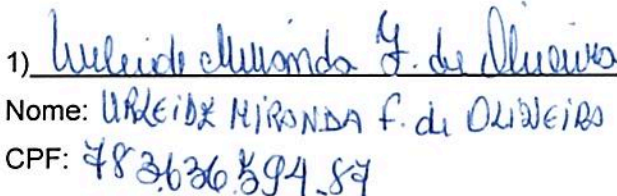 1) Urleide Miranda F. de Oliveira
Nome: URLEIDE MIRANDA F. de OLIVEIRA
CPF: 783.636.594.87